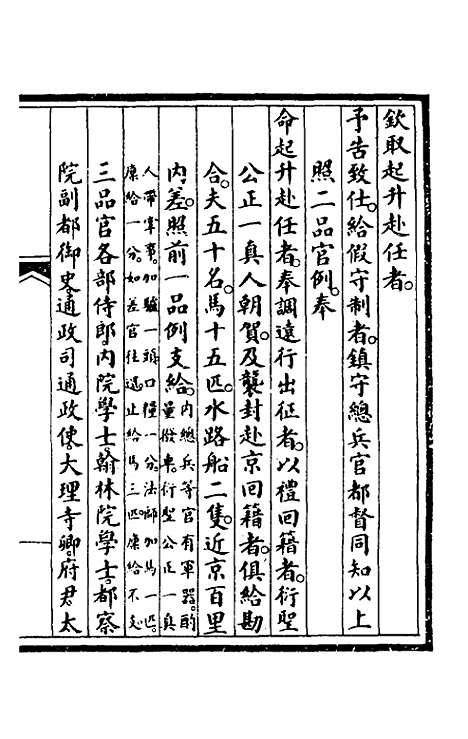 欽取起升赴任者。
予告致仕。給假守制者。鎮守總兵官都督同知以上
照二品官例。奉
命起升赴任者。奉調遠行出征者。以禮回籍者。衍聖
公正一真人朝賀。及襲封赴京回籍者。俱給勘
合。夫五十名。馬十五匹。水路船二隻。近京百里
內差。照前一品例支給。內總兵等官有軍器。酌
量撥車。衍聖公正一真
人帶家。加驢一頭口糧一分。法部加馬一匹。
廩給一分。如差官往迎止給馬三匹廩給不支
三品官各部侍郎。內院學士。翰林院學士。都察
院副都御史。通政司通政使。大理寺卿。府君。太